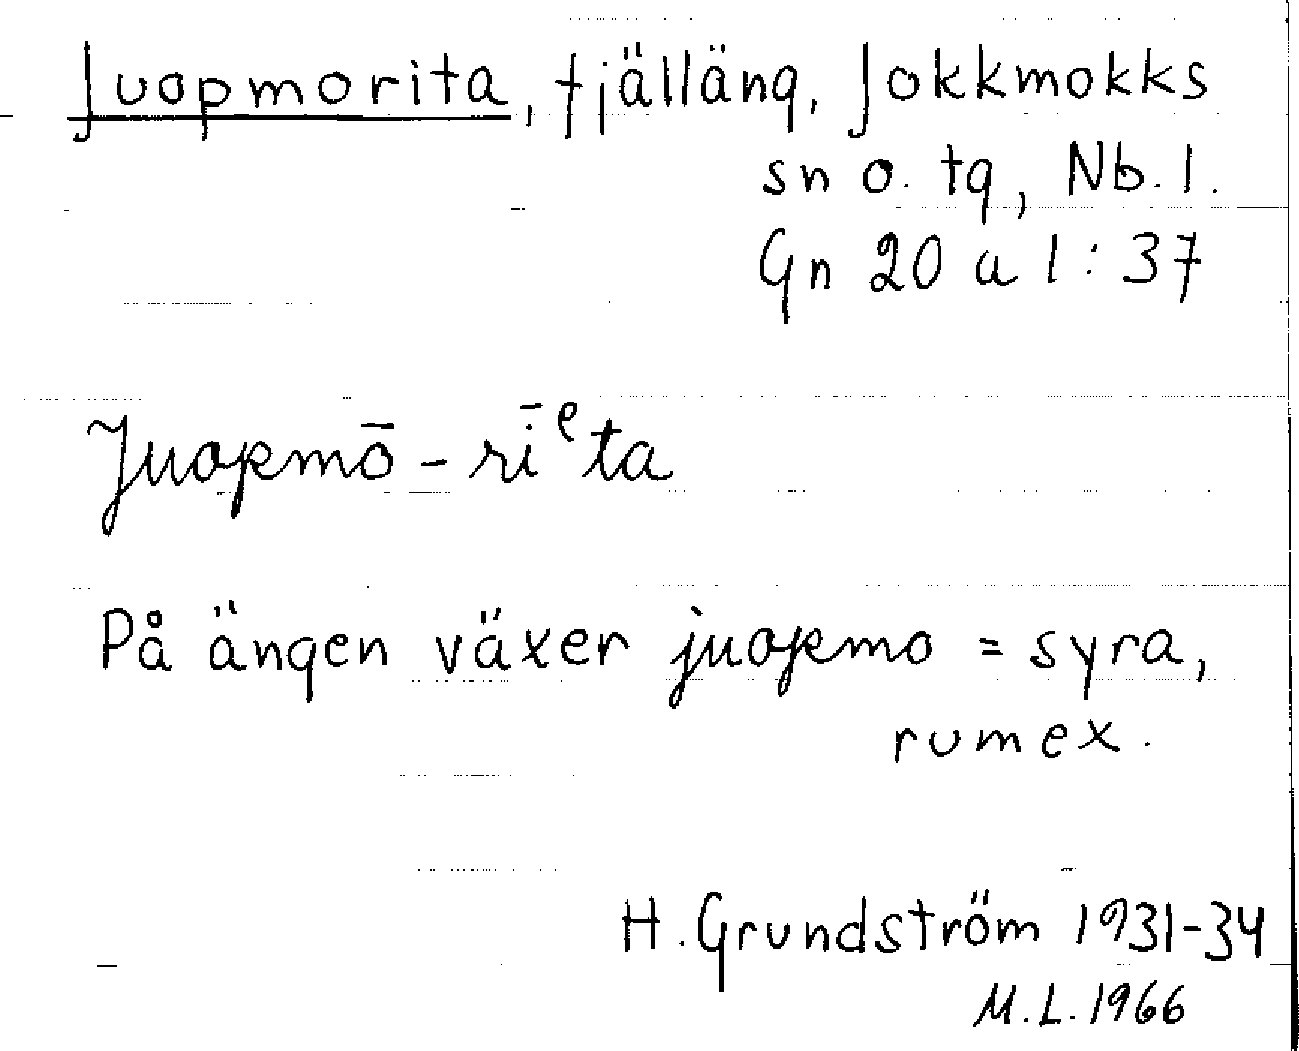 Juopmorita, fjälläng, Jokkmokks
sn o. tg, Nb. l.
Gn 20 a 1:37
Juopmō-rīᵉta
På ängen växer juopmo = syra,
rumex.
H. Grundström 1931-34
M.L. 1966